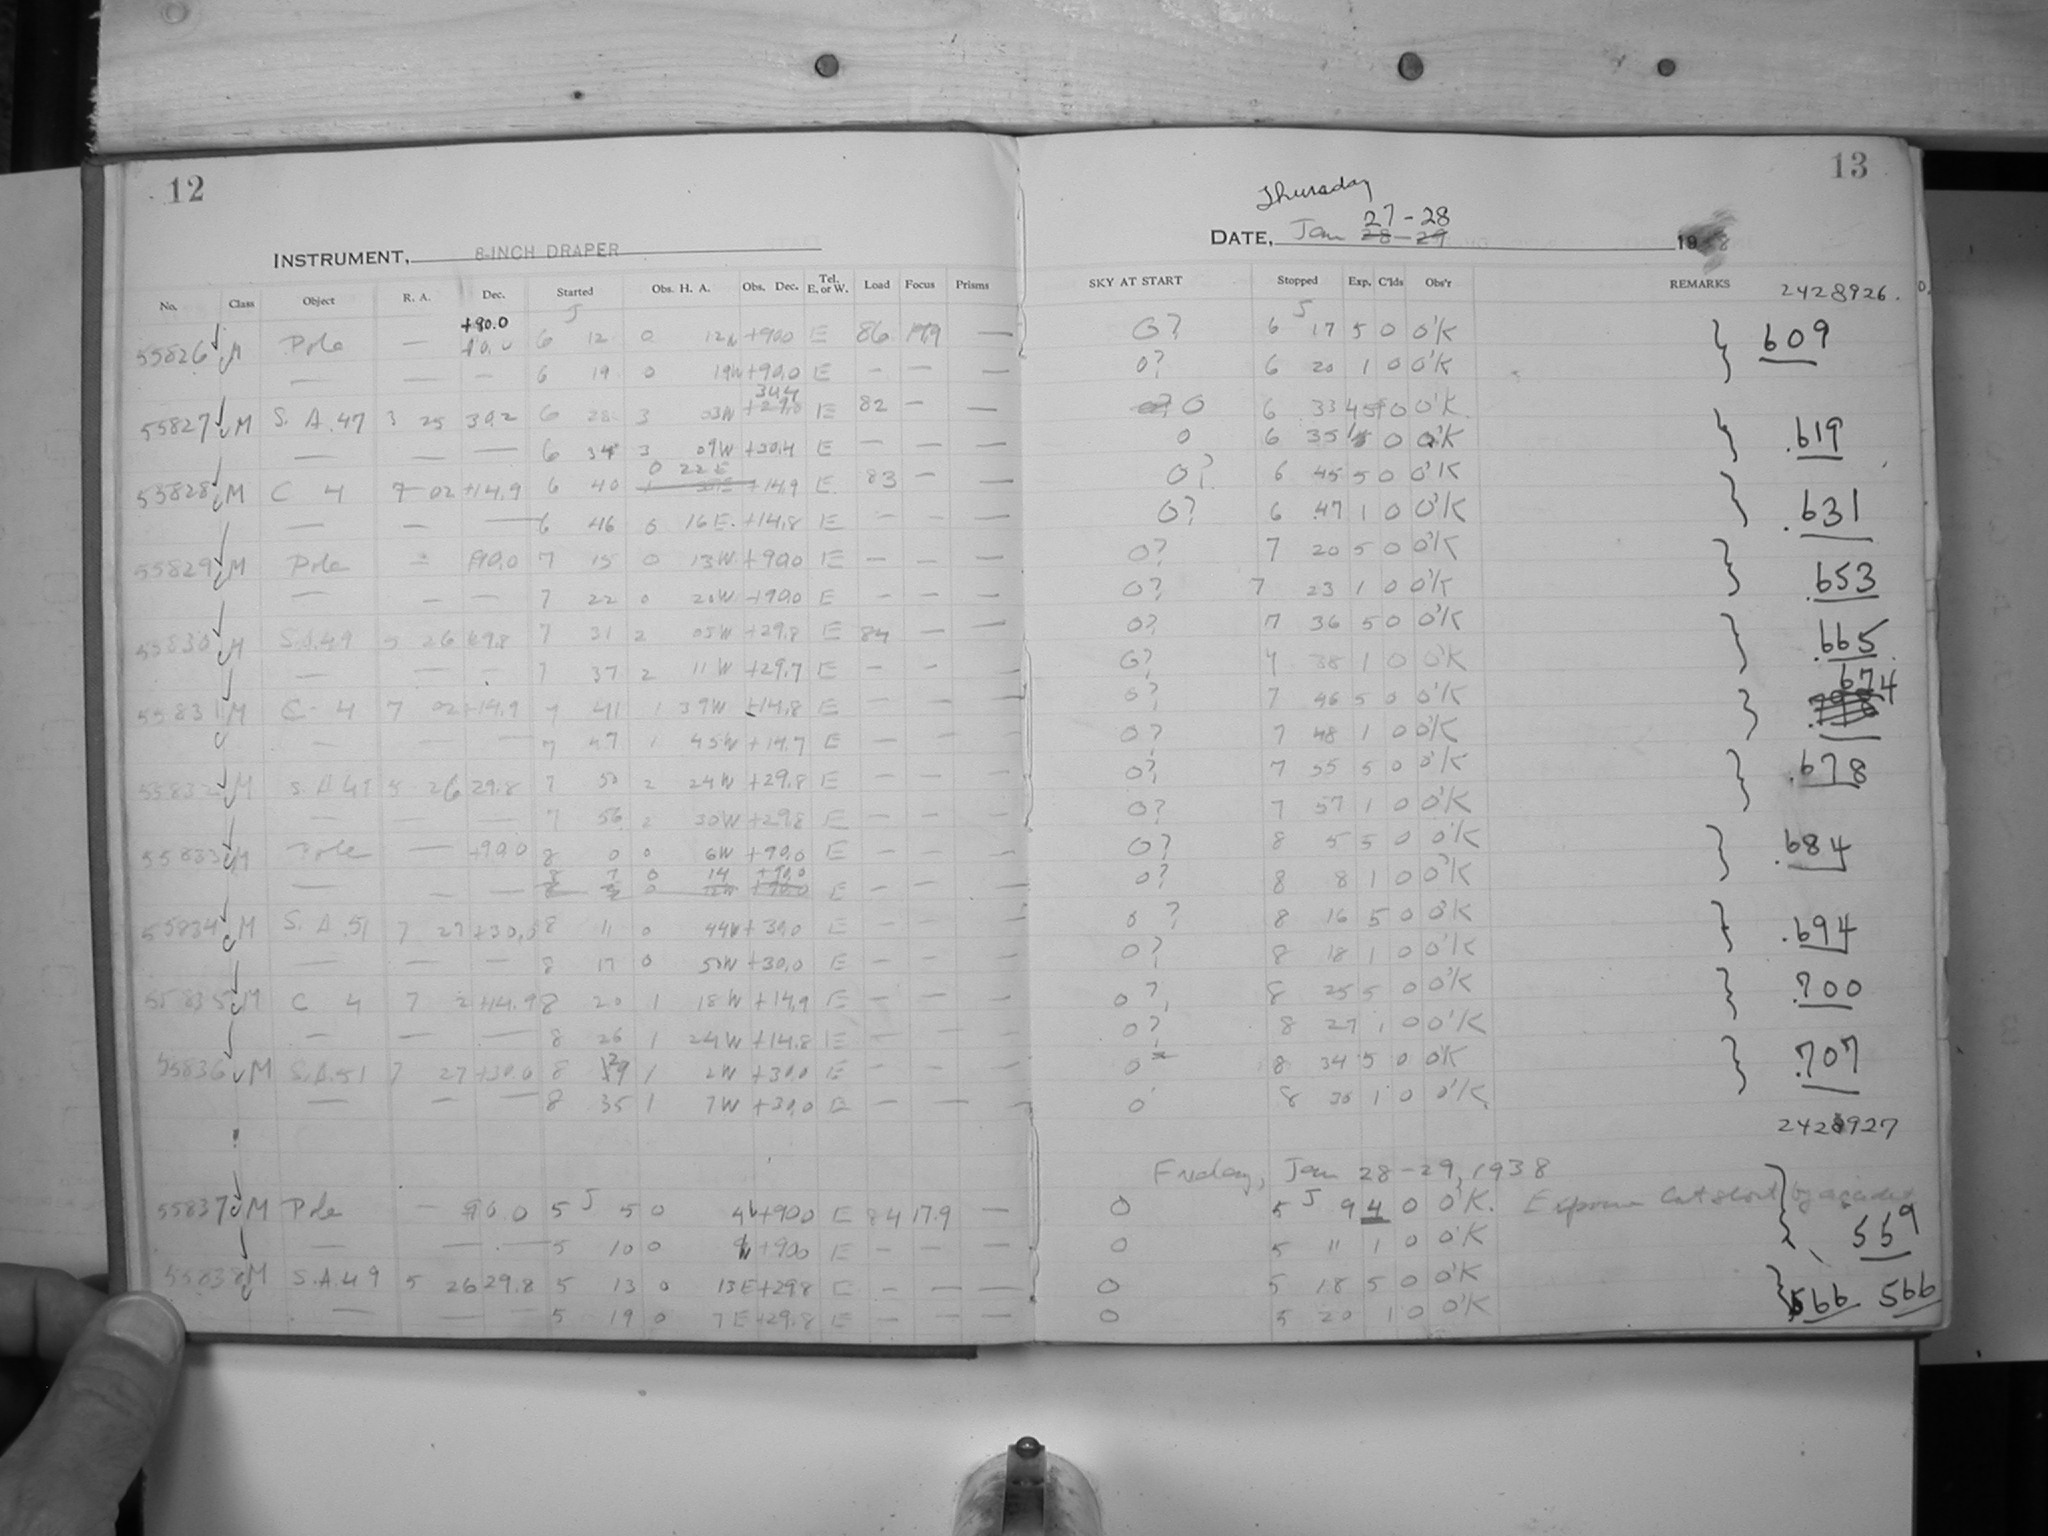 12
INSTRUMENT, 8-INCH DRAPER
No. Class Object R. A. Dec. Started Obs. H. A. Obs. Dec. Tel. E. or W. Load Focus Prisms
+90.0
55826 M Pole — 6 J 12 0 12W +90.0 E 86 —
— — — 6 19 0 19W +90.0 E — — —
55827 M S. A. 47 3 25 30.2 6 28 3 03W E 82 — —
— — — 6 34 3 09W +30.4 E — — —
0 22E
55828 M C 4 7 02 +14.9 6 40 +14.9 E 83 — —
— — — 6 46 0 16E. +14.8 E — — —
55829 M Pole — +90.0 7 15 0 13W +90.0 E — — —
— — — 7 22 0 20W +90.0 E — — —
55830 M S.A.49 5 26 29.8 7 31 2 05W +29.8 E 84 — —
— — — 7 37 2 11W +29.7 E — — —
55831 M C-4 7 02 +14.9 7 41 1 39W +14.8 E — — —
— — — 7 47 1 45W +14.7 E — — —
55832 M S.A 49 5 26 29.8 7 50 2 24W +29.8 E — — —
— — — 7 56 2 30W +29.8 E — — —
55833 M Pole — +90.0 8 0 0 6W +90.0 E — — —
— — — 8 7 0 14 +90.0 E — — —
55834 M S.A.51 7 27 +30.0 8 11 0 44W +30.0 E — — —
— — — 8 17 0 50W +30.0 E — — —
55835 M C 4 7 2 +14.9 8 20 1 18W +14.9 E — — —
— — — 8 26 1 24W +14.8 E — — —
55836 M S.A.51 7 27 +30.0 8 29 1 2W +30.0 E — — —
— — — 8 35 1 7W +30.0 E — — —
55837 M Pole — 90.0 5 J 5 0 4W +90.0 E 84 17.9 —
— — — 5 10 0 +90.0 E — — —
55838 M S.A.49 5 26 29.8 5 13 0 13E +29.8 E — — —
— — 5 19 0 7E +29.8 E — — —
13
Thursday
27-28
DATE, Jan 28-29 1938
SKY AT START Stopped Exp. C'lds Obs'r REMARKS 2428926.
0? 6 J 17 5 0 O'K 609
0? 6 20 1 0 O'K
0 6 33 0 O'K .619
0 6 35 1 0 O'K
0? 6 45 5 0 O'K .631
0? 6 47 1 0 O'K
0? 7 20 5 0 O'K .653
0? 7 23 1 0 O'K
0? 7 36 5 0 O'K .665
0? 7 38 1 0 O'K
0? 7 46 5 0 O'K 674
0? 7 48 1 0 O'K
0? 7 55 5 0 O'K .678
0? 7 57 1 0 O'K
0? 8 5 5 0 O'K .684
0? 8 8 1 0 O'K
0? 8 16 5 0 O'K .694
0? 8 18 1 0 O'K
0? 8 25 5 0 O'K .700
0? 8 27 1 0 O'K
0 8 34 5 0 O'K .707
0 8 36 1 0 O'K
2428927
Friday, Jan 28-29, 1938
0 5 J 9 4 0 O'K. Exposure Cut short by 559
0 5 11 1 0 O'K
0 5 18 5 0 O'K 566 566
0 5 20 1 0 O'K